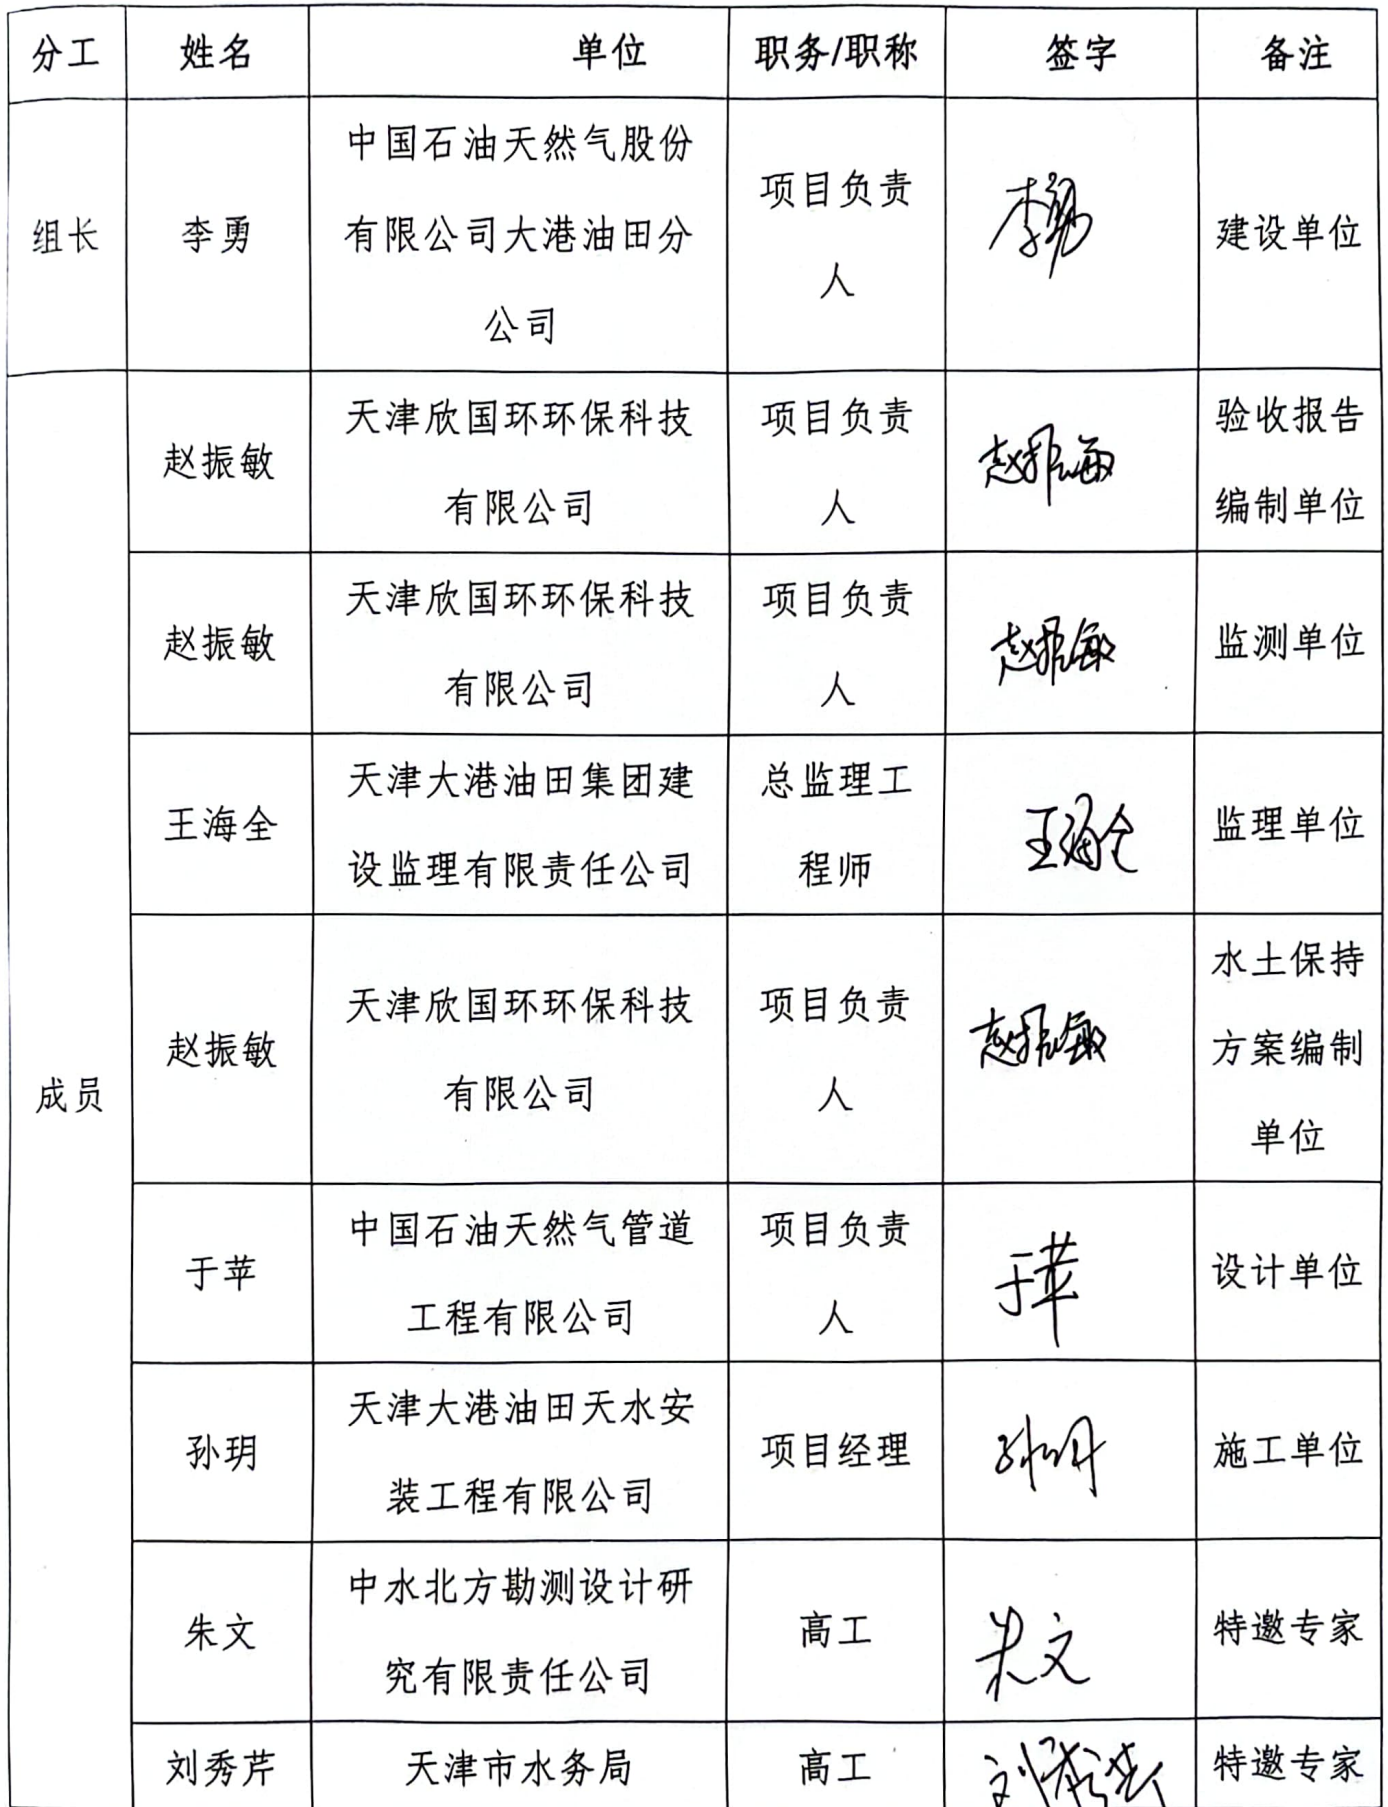 分工 姓名 单位 职务/职称 签字 备注
组长 李勇 中国石油天然气股份
有限公司大港油田分
公司 项目负责
人 李勇 建设单位
成员
赵振敏 天津欣国环环保科技
有限公司 项目负责
人 赵振敏 验收报告
编制单位
赵振敏 天津欣国环环保科技
有限公司 项目负责
人 赵振敏 监测单位
王海全 天津大港油田集团建
设监理有限责任公司 总监理工
程师 王海全 监理单位
赵振敏 天津欣国环环保科技
有限公司 项目负责
人 赵振敏 水土保持
方案编制
单位
于苹 中国石油天然气管道
工程有限公司 项目负责
人 于苹 设计单位
孙玥 天津大港油田天水安
装工程有限公司 项目经理 孙玥 施工单位
朱文 中水北方勘测设计研
究有限责任公司 高工 朱文 特邀专家
刘秀芹 天津市水务局 高工 刘秀芹 特邀专家